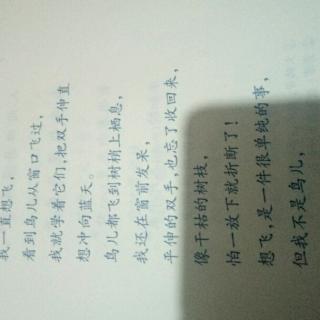 我一直想飞，
看到鸟儿从窗口飞过，
我就学着它们，把双手伸直
想冲向蓝天。
鸟儿都飞到树梢上栖息，
我还在窗前发呆，
平伸的双手，也忘了收回来，
像干枯的树枝，
怕一放下就折断了！
想飞，是一件很单纯的事，
但我不是鸟儿，